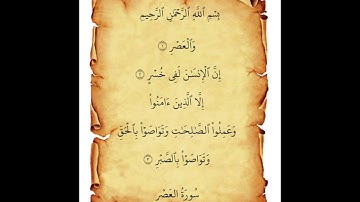 بِسْمِ ٱللَّهِ ٱلرَّحْمَٰنِ ٱلرَّحِيمِ
وَٱلْعَصْرِ ١
إِنَّ ٱلْإِنسَٰنَ لَفِى خُسْرٍ ٢
إِلَّا ٱلَّذِينَ ءَامَنُوا۟
وَعَمِلُوا۟ ٱلصَّٰلِحَٰتِ وَتَوَاصَوْا۟ بِٱلْحَقِّ
وَتَوَاصَوْا۟ بِٱلصَّبْرِ ٣
سُورَةُ العَصْرِ